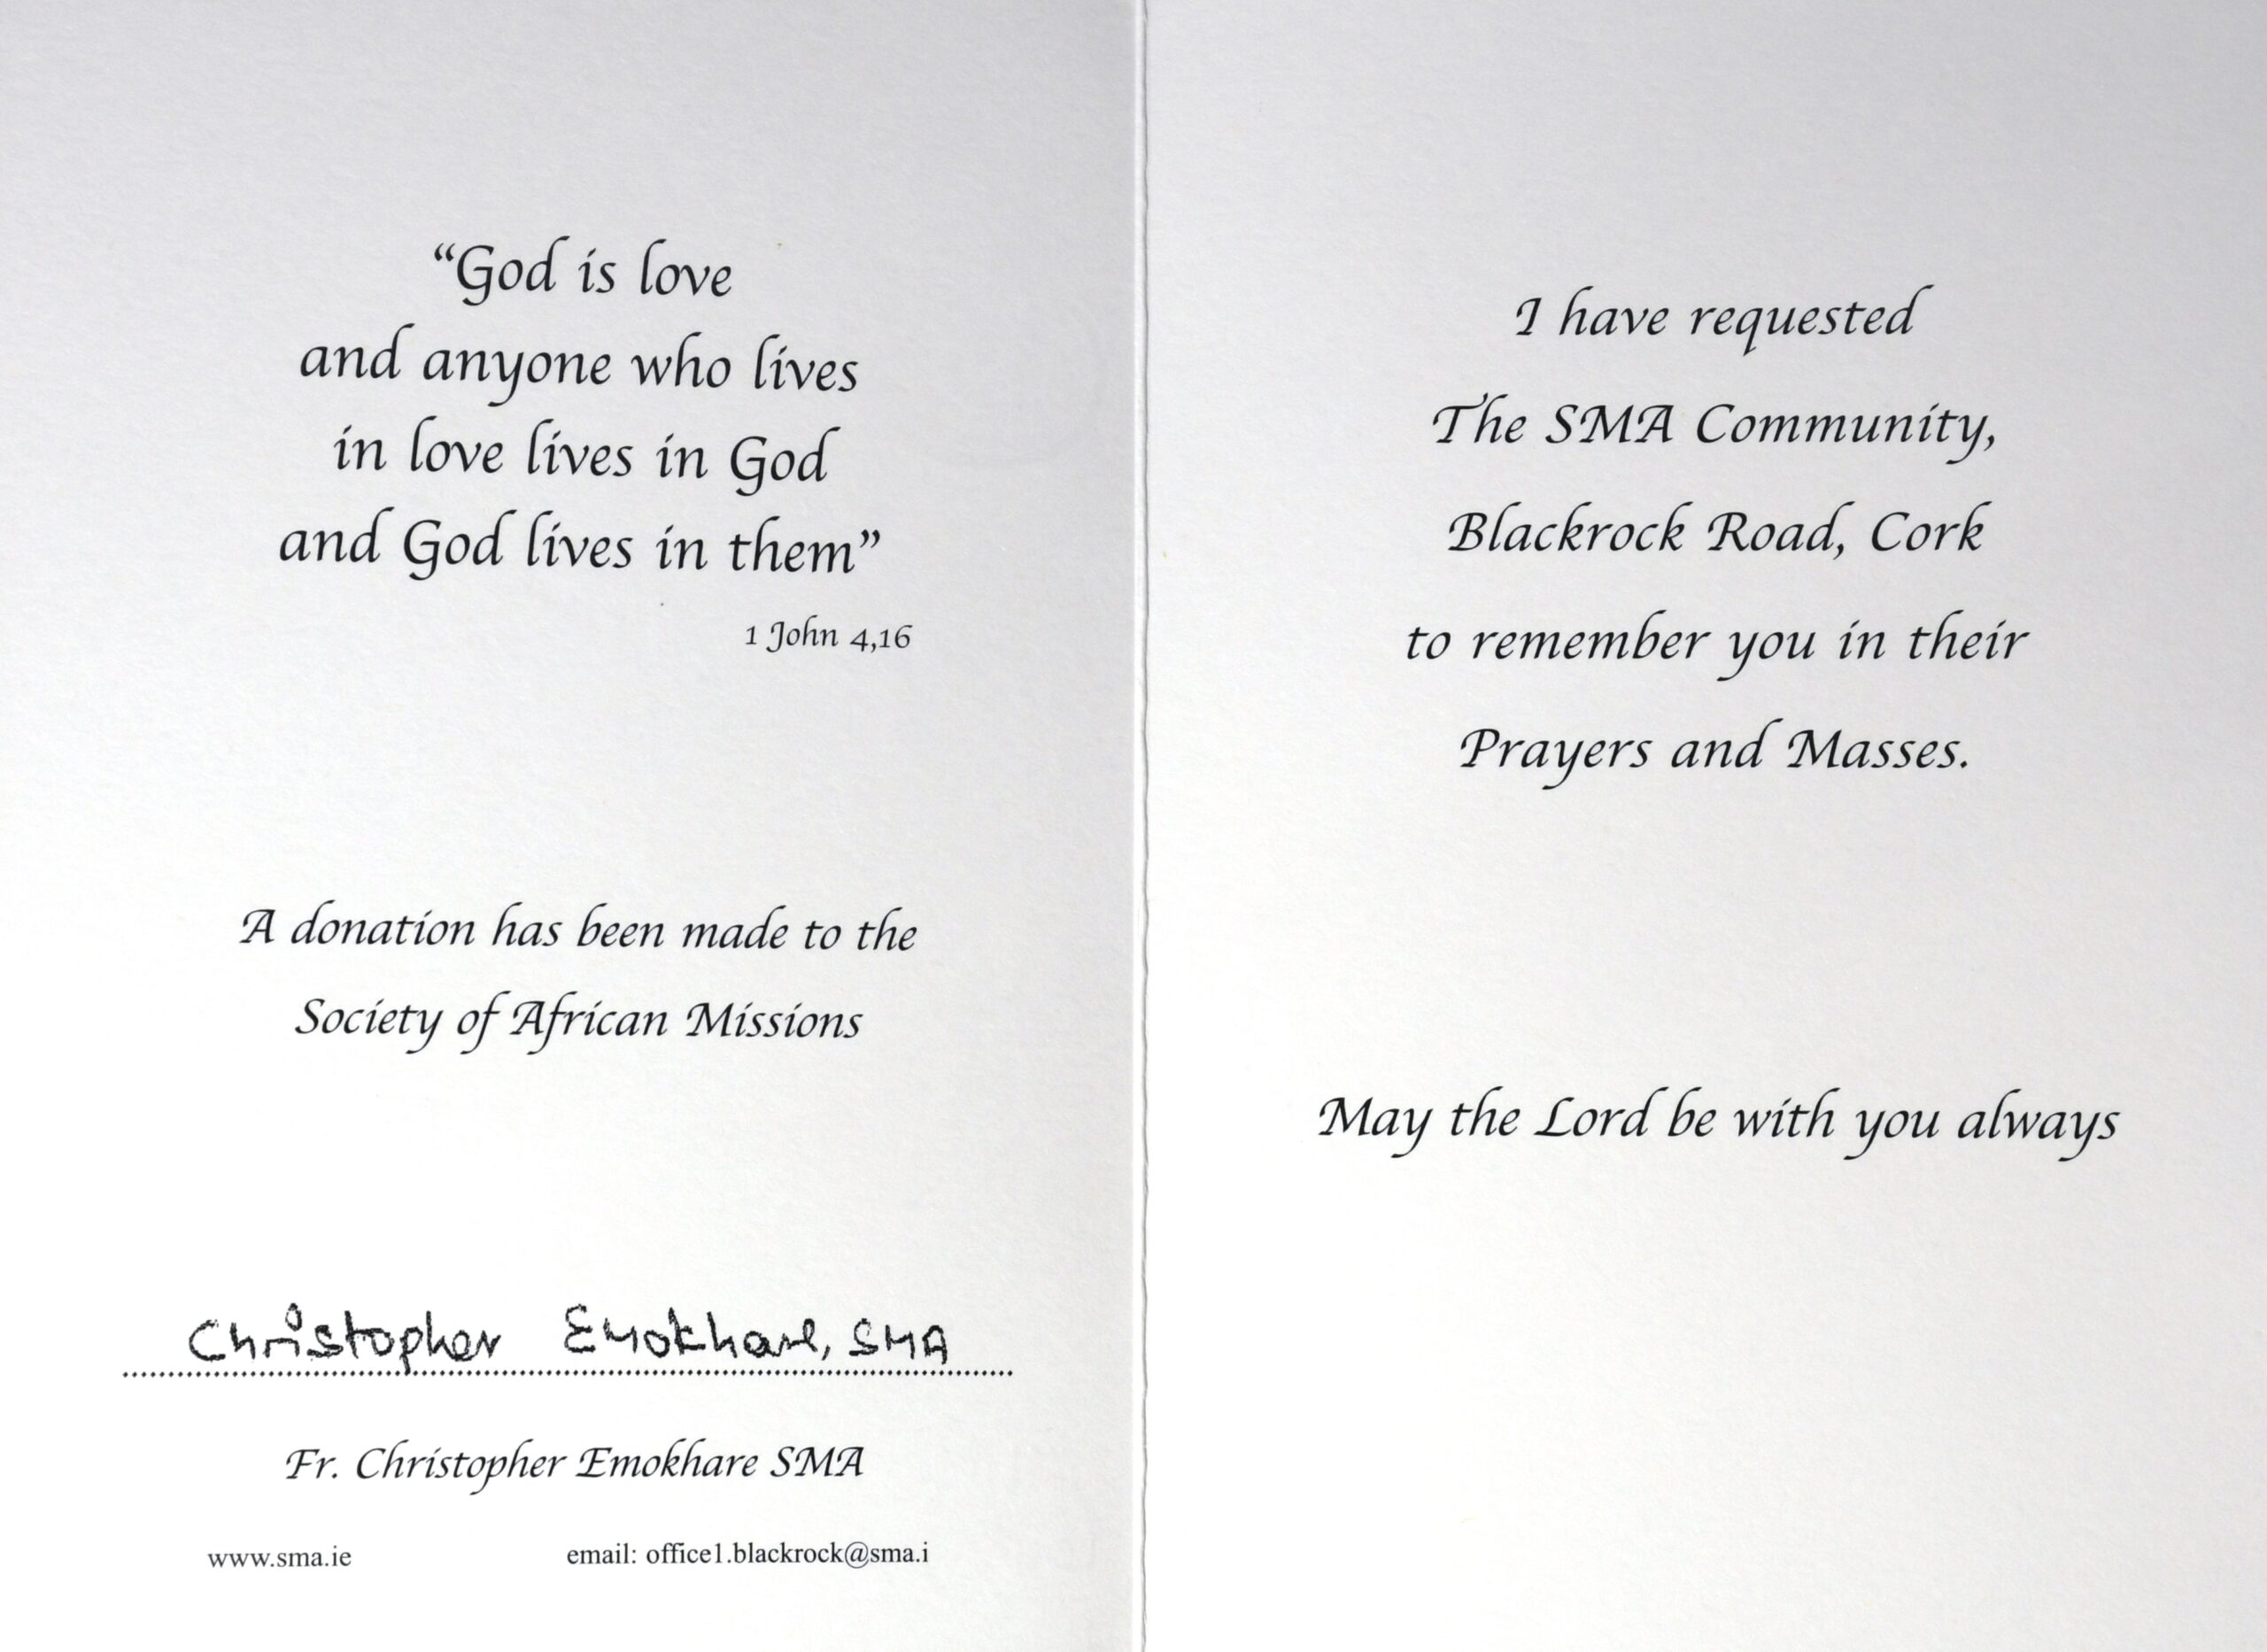 “God is love
and anyone who lives
in love lives in God
and God lives in them”
1 John 4,16
A donation has been made to the
Society of African Missions
Christopher Emokhare, SMA
Fr. Christopher Emokhare SMA
www.sma.ie email: office1.blackrock@sma.i
I have requested
The SMA Community,
Blackrock Road, Cork
to remember you in their
Prayers and Masses.
May the Lord be with you always